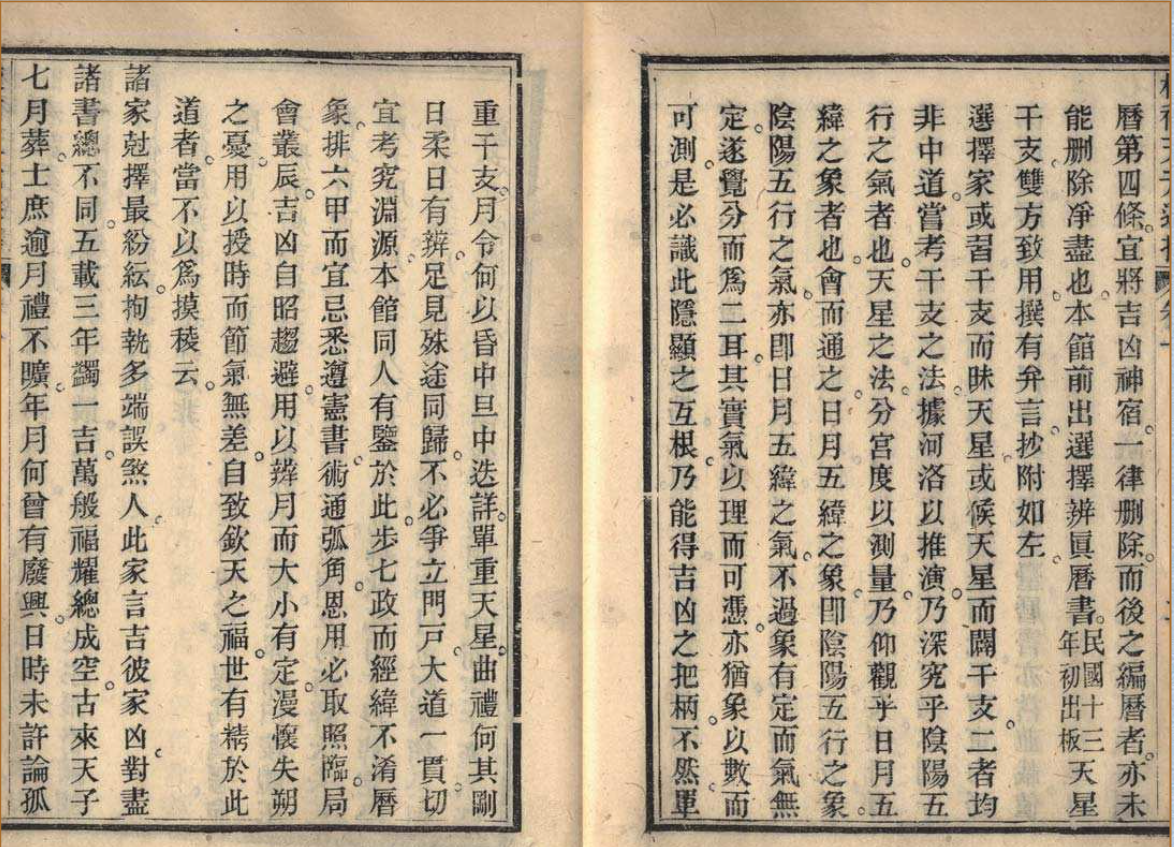 曆第四條。宜將吉凶神宿。一律删除。而後之編曆者。亦未
能删除凈盡也。本館前出選擇辨眞曆書。民國十三年初出板天星
干支。雙方致用。撰有弁言。抄附如左。
選擇家或習干支而昧天星。或候天星而闢干支。二者均
非中道。嘗考干支之法。據河洛以推演。乃深究乎陰陽五
行之氣者也。天星之法。分宮度以測量。乃仰觀乎日月五
緯之象者也。會而通之。日月五緯之象。卽陰陽五行之象。
陰陽五行之氣。亦卽日月五緯之氣。不過象有定而氣無
定。遂覺分而爲二耳。其實氣以理而可憑。亦猶象以數而
可測。是必識此隱顯之互根。乃能得吉凶之把柄。不然。單
重干支。月令何以昏中旦中迭詳。單重天星。曲禮何其剛
日柔日有辨。足見殊途同歸。不必爭立門戸。大道一貫。切
宜考究淵源。本館同人有鑒於此。步七政而經緯不淆。曆
象。排六甲而宜忌悉遵憲書。術通弧角。恩用必取照臨。局
會叢辰。吉凶自昭趨避。用以辨月而大小有定。漫懷失朔
之憂。用以授時而節氣無差。自致欽天之福。世有精於此
道者。當不以爲摸稜云。
諸家尅擇最紛紜。拘執多端誤煞人。此家言吉彼家凶。對盡
諸書總不同。五載三年蠲一吉。萬般福耀總成空。古來天子
七月葬。士庶逾月禮不曠。年月何曾有廢興。日時未許論孤